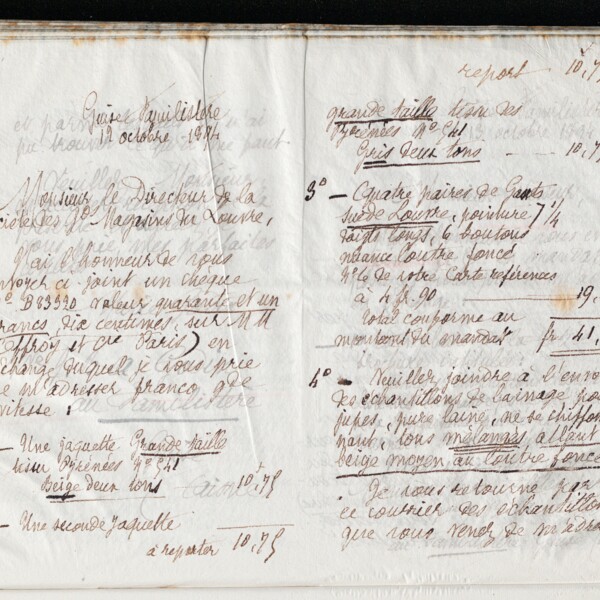 Guise Familistère
12 octobre 1894
Monsieur le Directeur de la
ciété des Gds Magasins du Louvre,
J'ai l'honneur de vous
nvoyer ci-joint un chèque
B 83320 valeur quarante et un
rancs, dix centimes, sur MM
Offroy et Cie Paris) en
change duquel je vous prie
e m'adresser franco gde
vitesse :
– Une jaquette Grande taille
tissu Pyrénées No 541
Beige deux tons 10,75
– Une seconde jaquette
à reporter 10,75
report 10,75
grande taille tissu des
Pyrénées No 541
Gris deux tons 10,75
3o – Quatre paires de Gants
suède Louvre, pointure 7 1/4
doigts longs, 6 boutons
nuance loutre foncé
No 6 de votre carte références
à 4 fr. 90 19,
Total conforme au
montant du mandat fr 41,
4o – Veuillez joindre à l'envo
des échantillons de lainage po
jupes, pure laine, ne se chiffon
nant, tous mélangés, allant
beige moyen au loutre foncé
Je vous retourne par
ce courrier des échantillon
que vous venez de m'adre